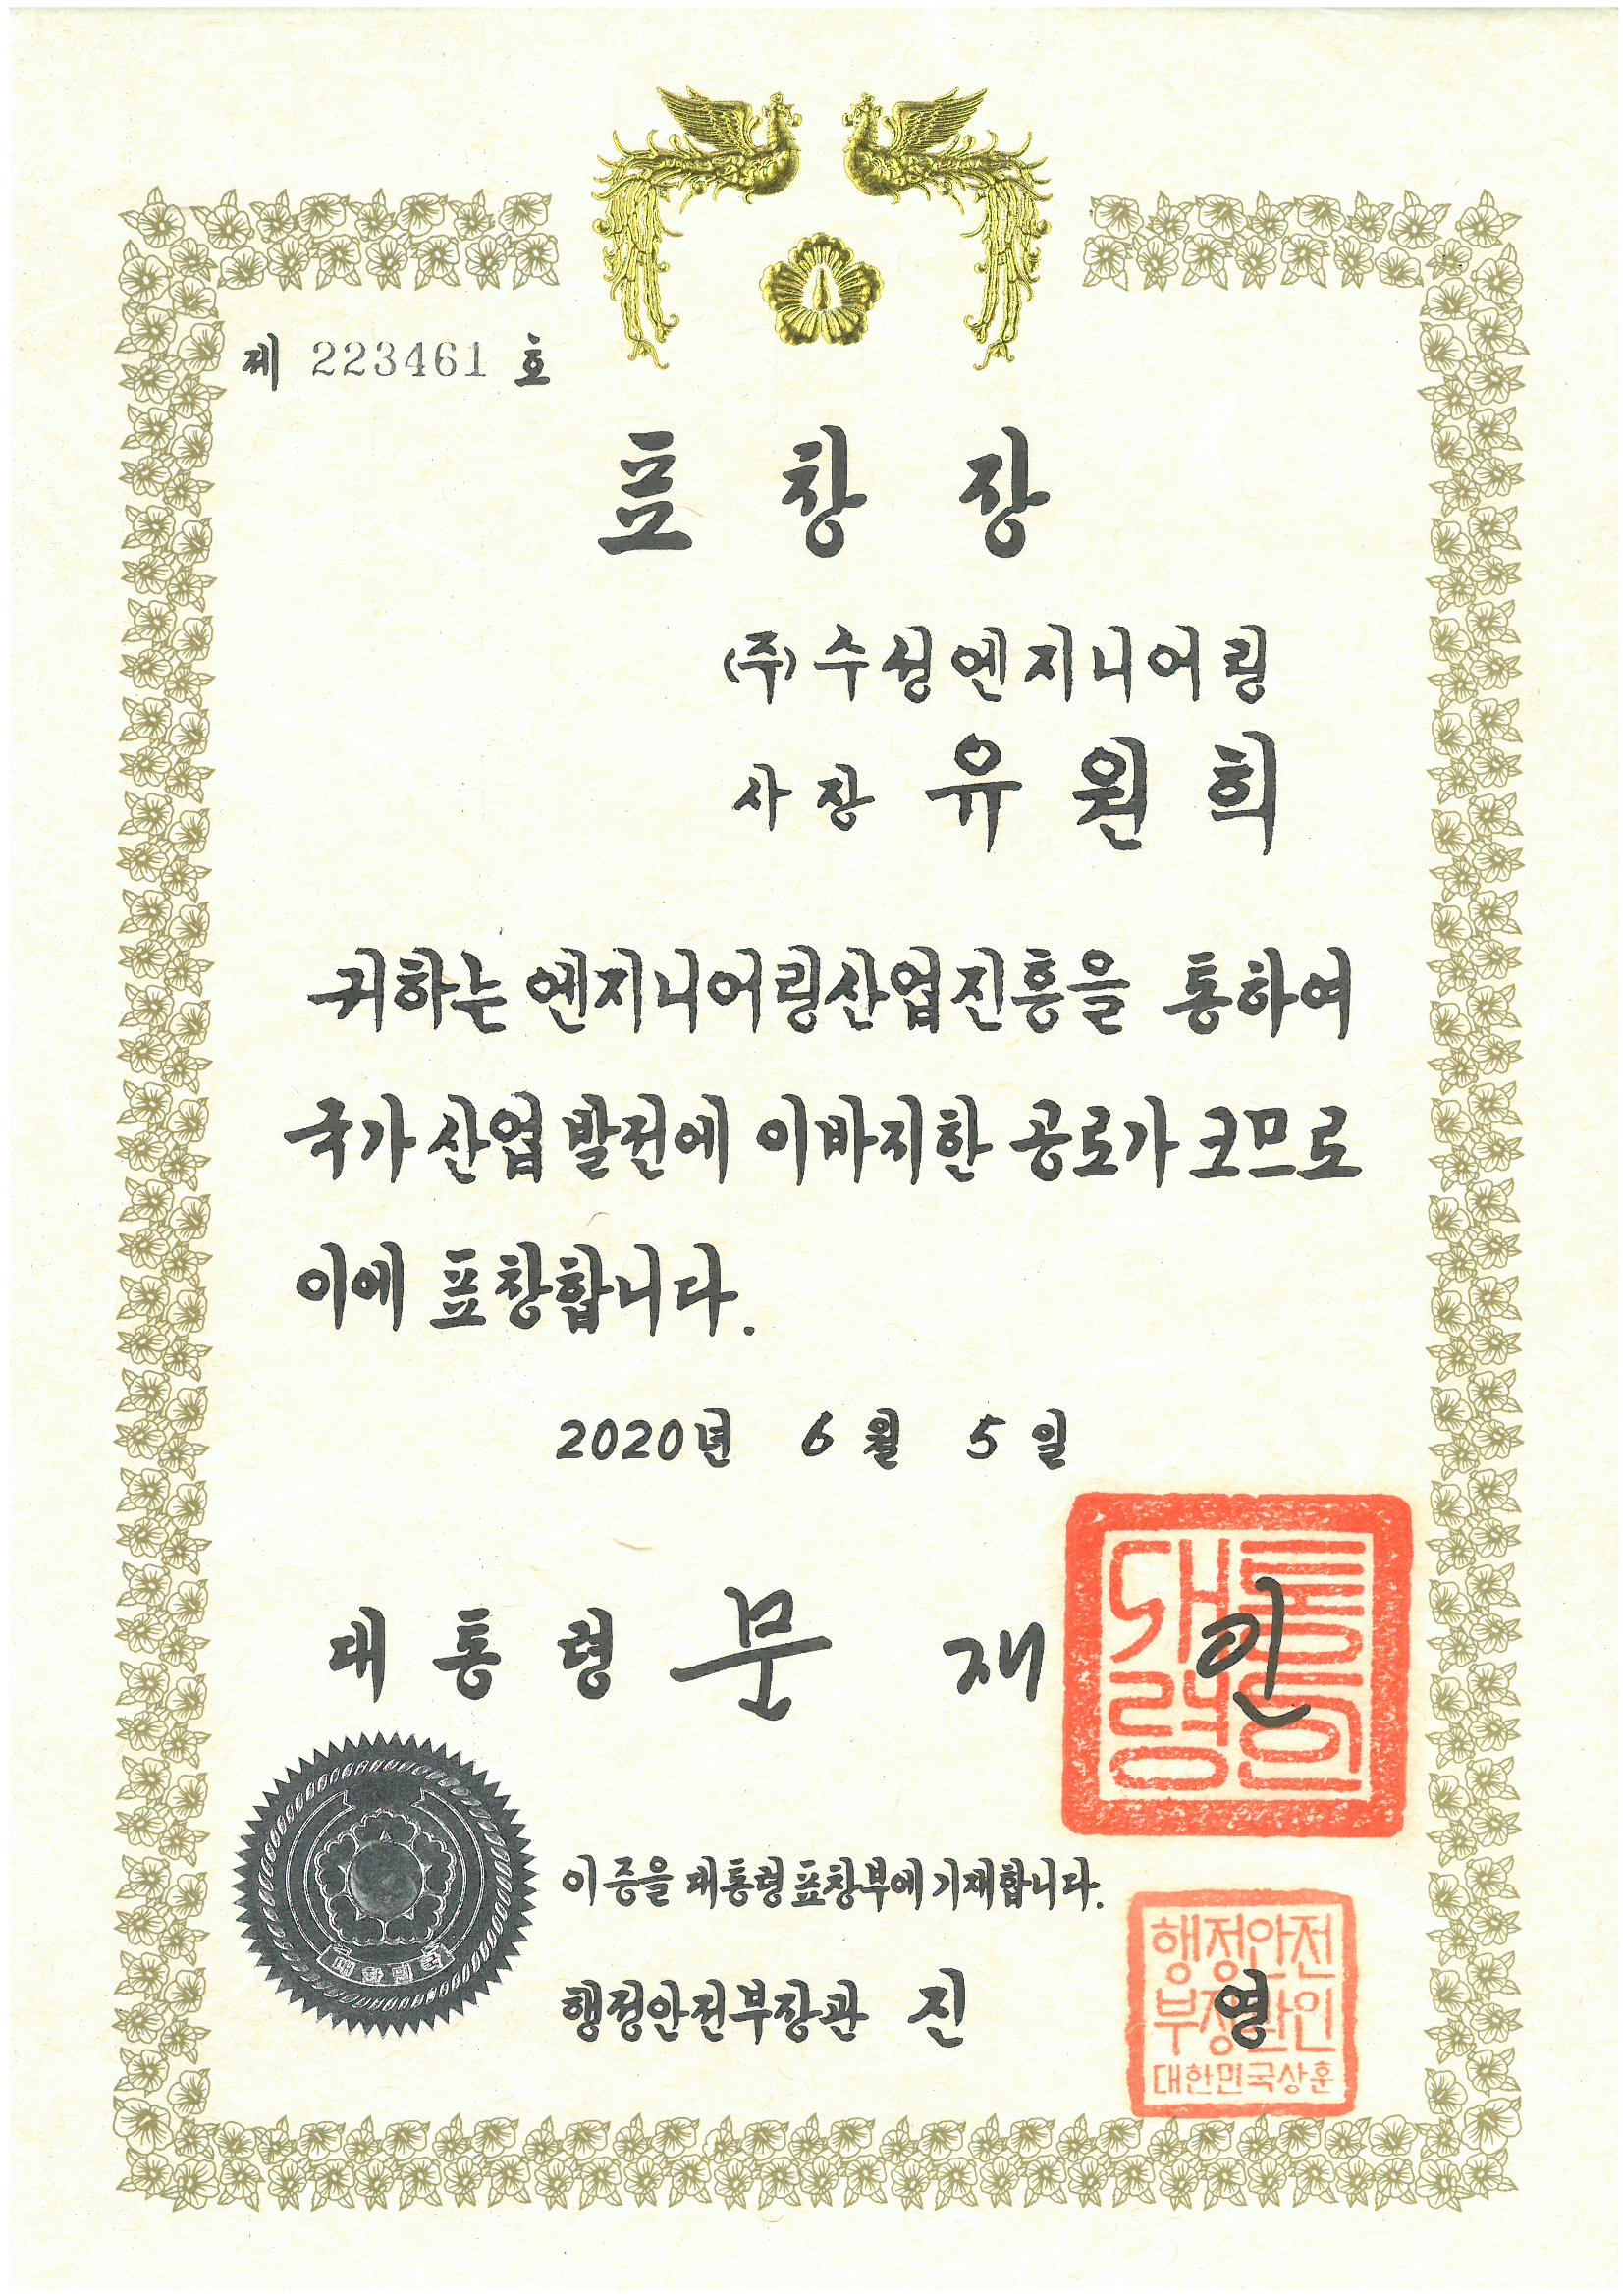 제 223461 호
표 창 장
(주)수성엔지니어링
사장 유 원 희
귀하는 엔지니어링산업진흥을 통하여
국가 산업 발전에 이바지한 공로가 크므로
이에 표창합니다.
2020년 6월 5일
대 통 령 문 재 인
대통령인
대한민국
이 증을 대통령표창부에 기재합니다.
행정안전부장관 진 영
행정안전
부장관인
대한민국상훈